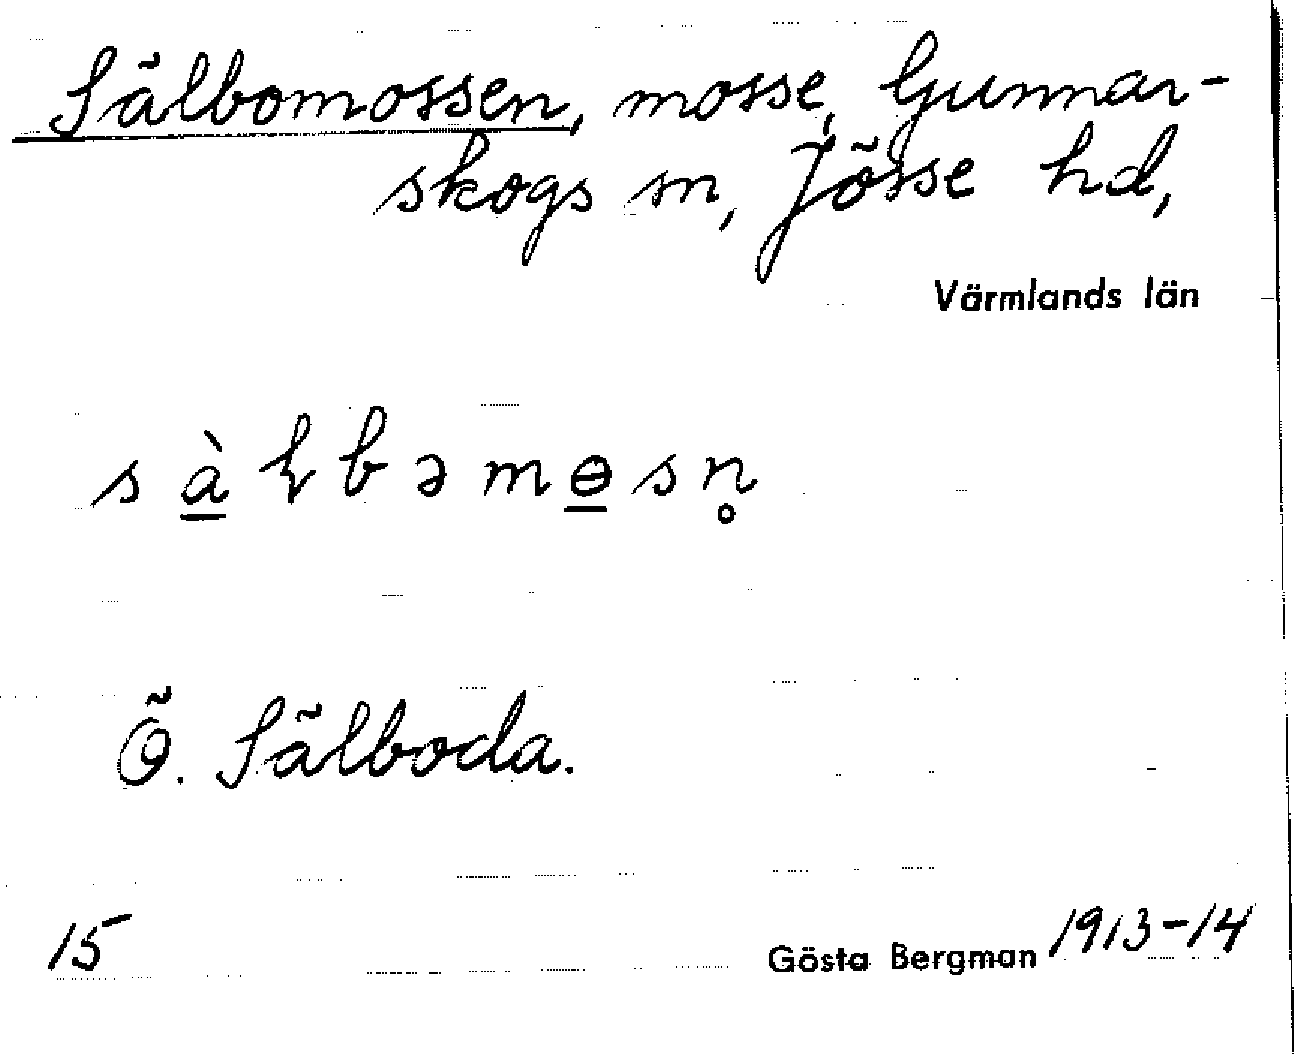 Sälbomossen, mosse, Gunnar-
skogs sn, Jösse hd,
Värmlands län
Ö. Sälboda.
15
Gösta Bergman 1913-14